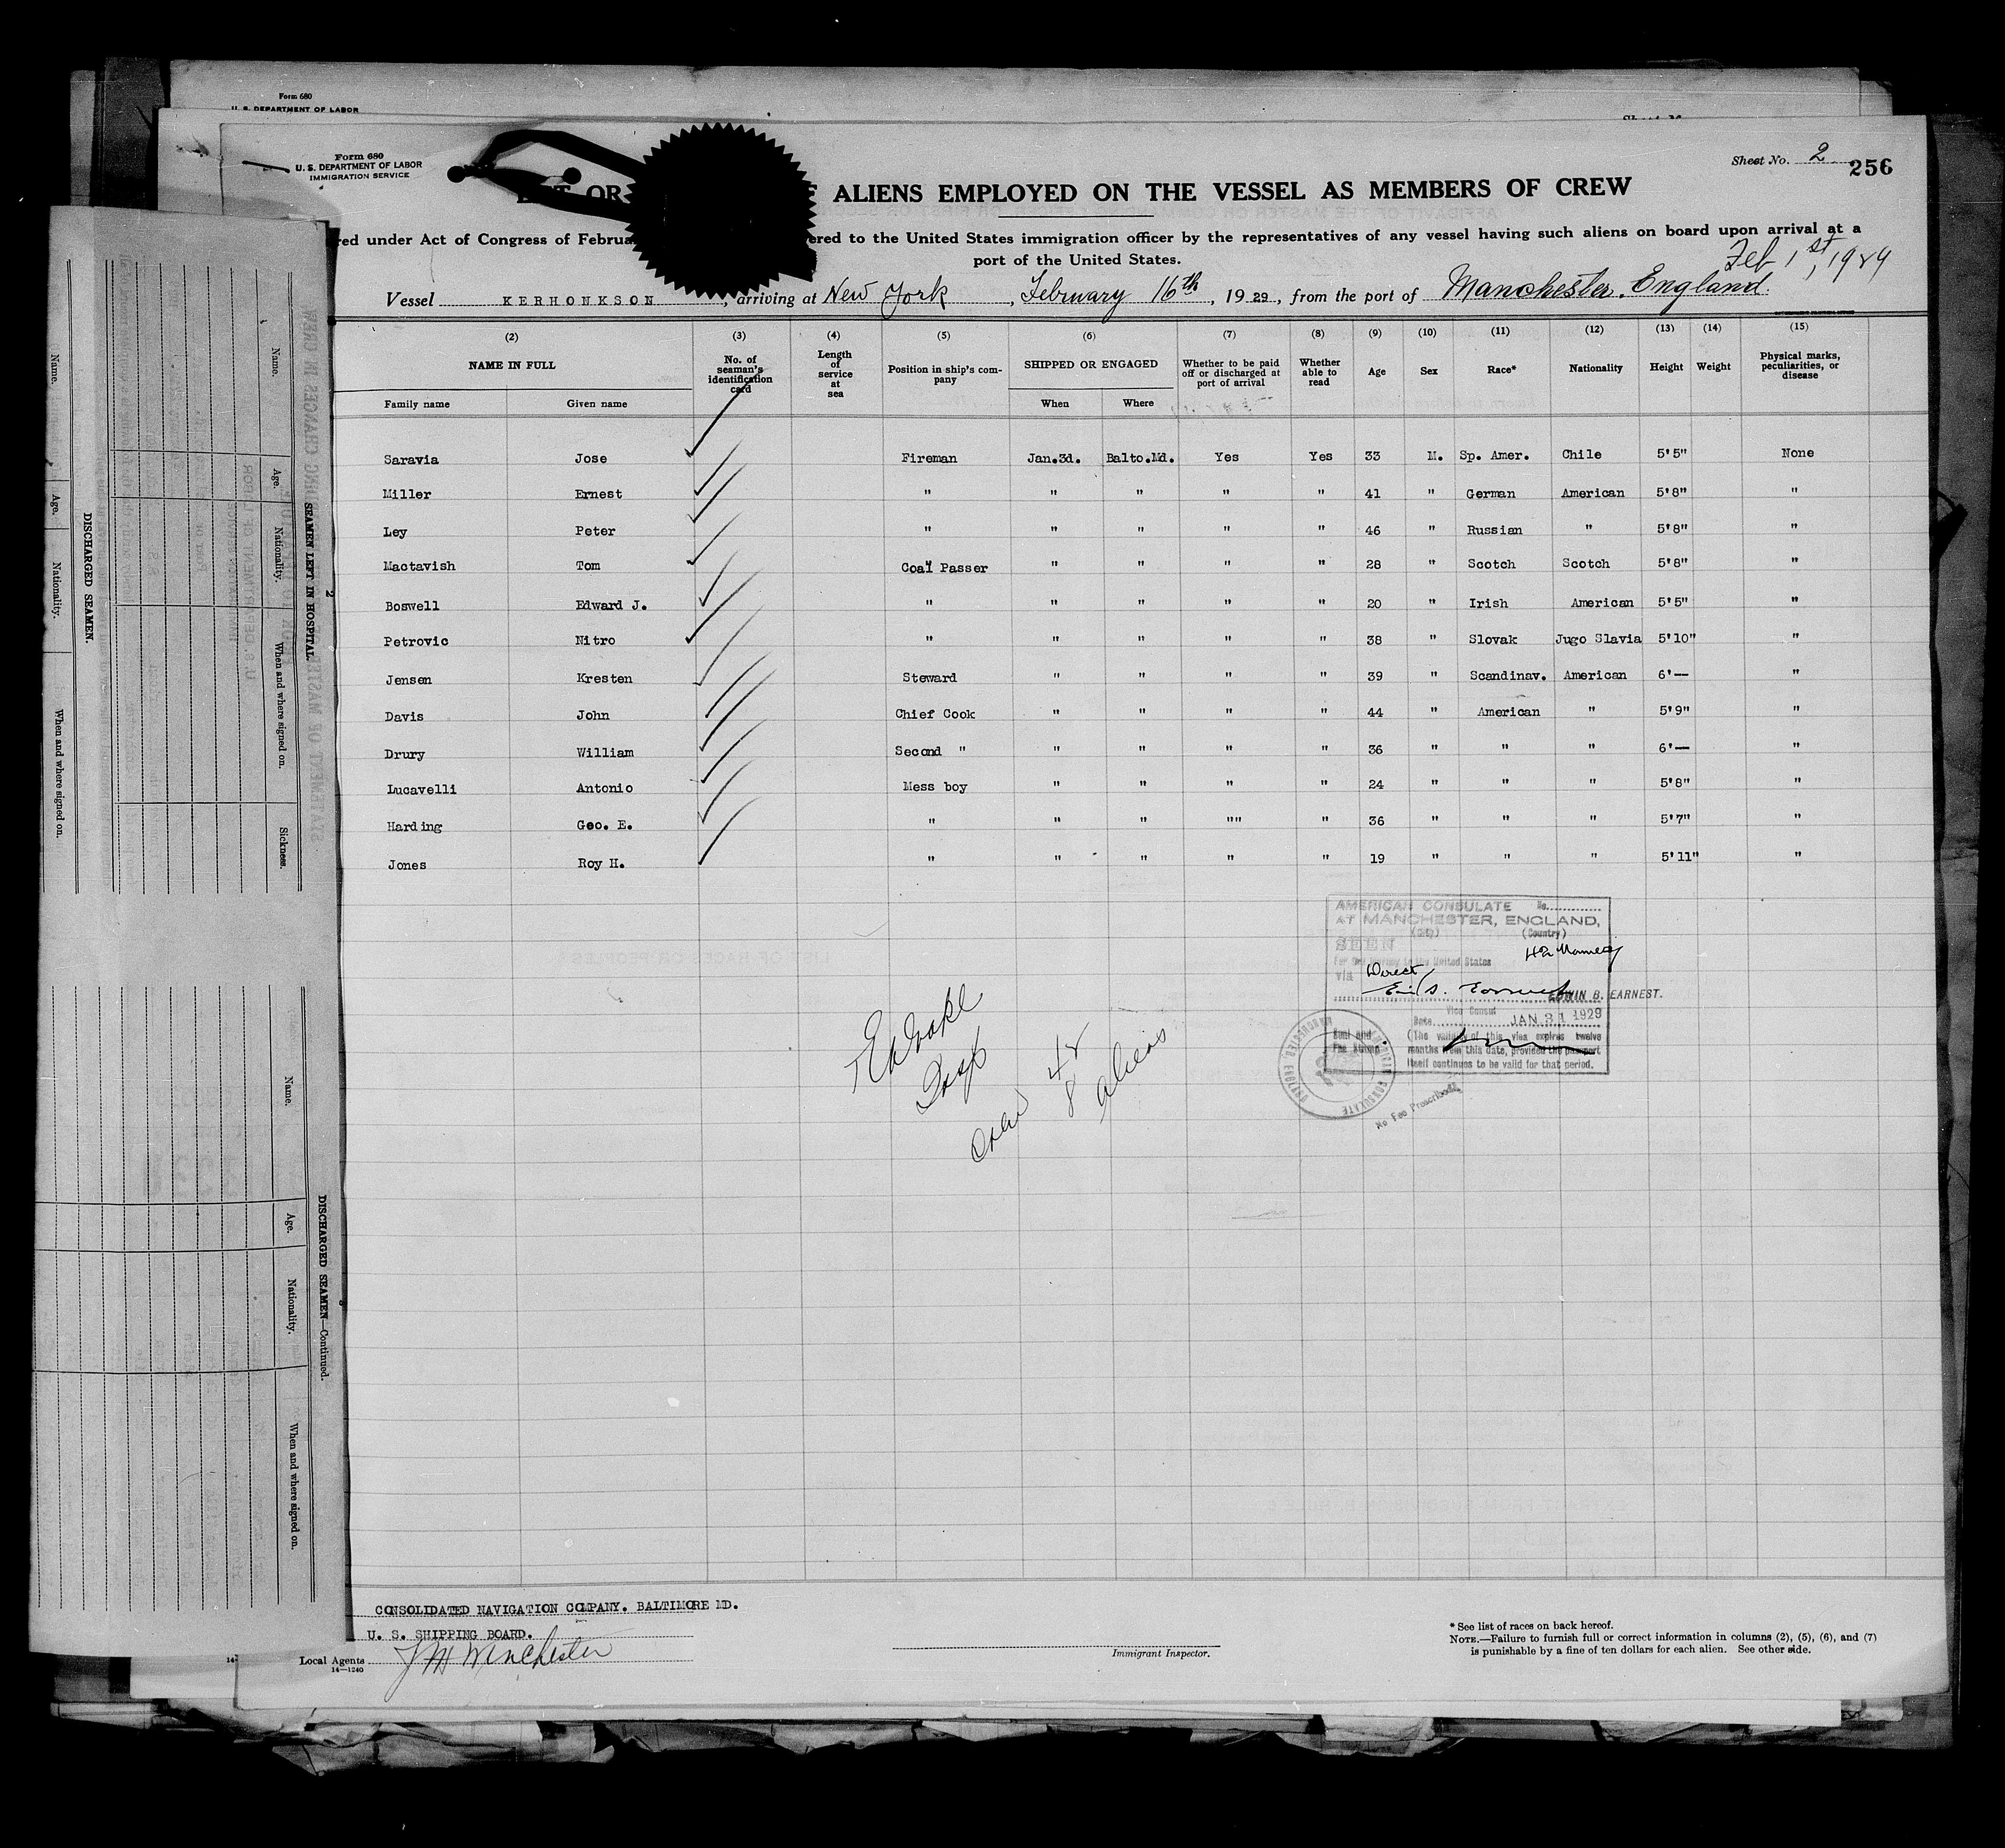 Form 680
U. S. DEPARTMENT OF LABOR
Form 680
U. S. DEPARTMENT OF LABOR
IMMIGRATION SERVICE
Sheet No. 2
256
OR F ALIENS EMPLOYED ON THE VESSEL AS MEMBERS OF CREW
red under Act of Congress of Februa ered to the United States immigration officer by the representatives of any vessel having such aliens on board upon arrival at a
port of the United States.
Feb 1st, 1929
Vessel KERHONKSON, arriving at New York, February 16th, 1929, from the port of Manchester, England.
(2) (3) (4) (5) (6) (7) (8) (9) (10) (11) (12) (13) (14) (15)
NAME IN FULL No. of seaman's identification card Length of service at sea Position in ship's company SHIPPED OR ENGAGED Whether to be paid off or discharged at port of arrival Whether able to read Age Sex Race* Nationality Height Weight Physical marks, peculiarities, or disease
Family name Given name When Where
Saravia Jose Fireman Jan.3d. Balto.Md. Yes Yes 33 M. Sp. Amer. Chile 5'5" None
Miller Ernest " " " " " 41 " German American 5'8" "
Ley Peter " " " " " 46 " Russian " 5'8" "
Mactavish Tom Coal Passer " " " " 28 " Scotch Scotch 5'8" "
Boswell Edward J. " " " " " 20 " Irish American 5'5" "
Petrovic Nitro " " " " " 38 " Slovak Jugo Slavia 5'10" "
Jensen Kresten Steward " " " " 39 " Scandinav. American 6'— "
Davis John Chief Cook " " " " 44 " American " 5'9" "
Drury William Second " " " " " 36 " " " 6'— "
Lucavelli Antonio Mess boy " " " " 24 " " " 5'8" "
Harding Geo. E. " " " "" " 36 " " " 5'7" "
Jones Roy H. " " " " " 19 " " " 5'11" "
AMERICAN CONSULATE No.
AT MANCHESTER, ENGLAND,
(City) (Country)
SEEN
For the journey to the United States
via Direct
EDWIN B. EARNEST.
Vice Consul
Date JAN 31 1929
Seal and Fee Stamp
(The validity of this visa expires twelve
months from this date, provided the passport
itself continues to be valid for that period.
AMERICAN CONSULATE
MANCHESTER ENGLAND
No Fee Prescribed
Insp
Crew 42
8 aliens
CONSOLIDATED NAVIGATION COMPANY. BALTIMORE MD.
U. S. SHIPPING BOARD.
Local Agents J M Winchester
14—1240
Immigrant Inspector.
* See list of races on back hereof.
NOTE.—Failure to furnish full or correct information in columns (2), (5), (6), and (7)
is punishable by a fine of ten dollars for each alien. See other side.
SEAMEN LEFT IN HOSPITAL.
Name. Age. Nationality. When and where signed on. Sickness.
DISCHARGED SEAMEN.
Name. Age. Nationality. When and where signed on.
DISCHARGED SEAMEN—Continued.
Name. Age. Nationality. When and where signed on.